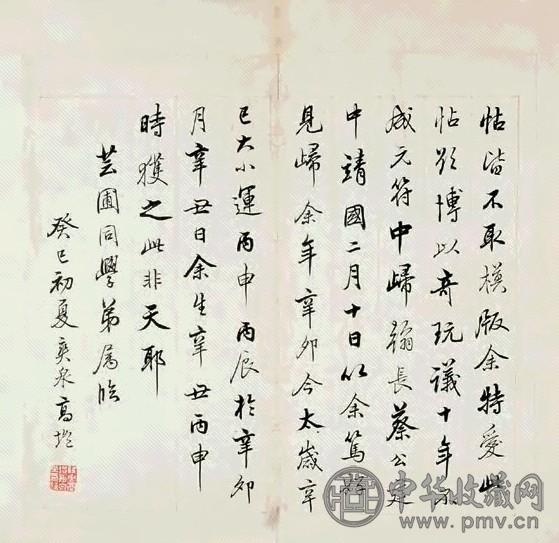 帖皆不取模版余特爱此
帖欲博以奇玩議十年不
成元符中歸翰長蔡公建
中靖國二月十日以余篤好
見歸余年辛卯今太歲辛
巳大小運丙申丙辰於辛卯
月辛丑日余生辛丑丙申
時獲之此非天耶
芸圃同學弟屬臨
癸巳初夏爽泉高塏
中华收藏网
www.pmv.cn